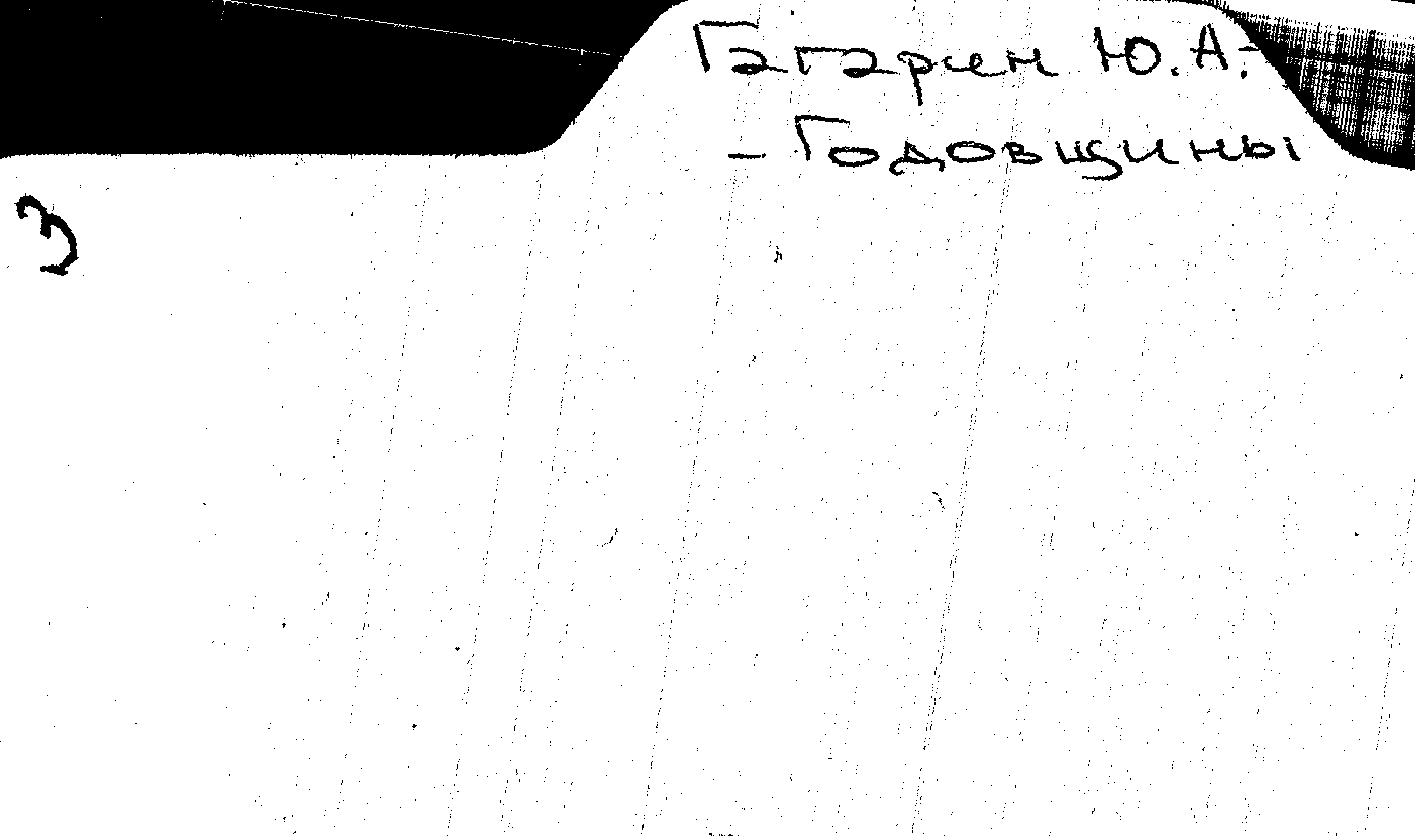 Гагарин Ю.А.-
- Годовщины
З